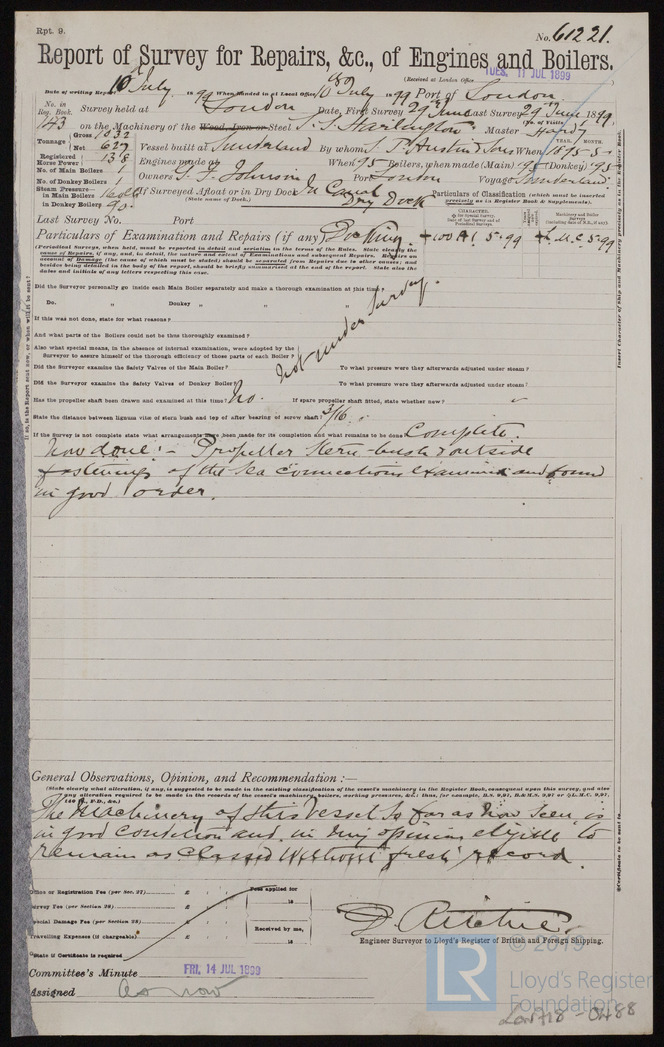 Rpt. 9.
No. 61221.
Report of Survey for Repairs, &c., of Engines and Boilers.
(Received at London Office TUES. 11 JUL 1899
Date of writing Report 10 July 1899 When handed in at Local Office 10 July 1899 Port of London
No. in Reg. Book. Survey held at London Date, First Survey 29th June Last Survey 29th June 1899
143 on the Machinery of the Wood, Iron or Steel S.S. Harlington Master Hardy
Tonnage Gross 1032
Net 627 Vessel built at Sunderland By whom S. P. Austin & Sons When 1895-5
YEAR. MONTH.
Registered Horse Power 138 Engines made at When 95 Boilers, when made (Main) 95 (Donkey) 95
No. of Main Boilers 1
No. of Donkey Boilers 1 Owners Port London Voyage Sunderland
Steam Pressure— in Main Boilers 160 lbs If Surveyed Afloat or in Dry Dock In Canal Dry Dock
(State name of Dock.)
in Donkey Boilers 90
Particulars of Classification (which must be inserted precisely as in Register Book & Supplements).
Last Survey No. Port
Particulars of Examination and Repairs (if any) Docking. +100A1 5.99 +L.M.C. 5.99
(Periodical Surveys, when held, must be reported in detail and seriatim in the terms of the Rules. State clearly the
cause of Repairs, if any, and, in detail, the nature and extent of Examinations and subsequent Repairs. Repairs on
account of Damage (the cause of which must be stated) should be separated from Repairs due to other causes; and
besides being detailed in the body of the report, should be briefly summarised at the end of the report. State also the
dates and initials of any letters respecting this case.
Did the Surveyor personally go inside each Main Boiler separately and make a thorough examination at this time?
Do. " Donkey " " "
not under survey.
If this was not done, state for what reasons?
And what parts of the Boilers could not be thus thoroughly examined?
Also what special means, in the absence of internal examination, were adopted by the
Surveyor to assure himself of the thorough efficiency of those parts of each Boiler?
Did the Surveyor examine the Safety Valves of the Main Boiler? To what pressure were they afterwards adjusted under steam?
Did the Surveyor examine the Safety Valves of Donkey Boiler? To what pressure were they afterwards adjusted under steam?
Has the propeller shaft been drawn and examined at this time? No. If spare propeller shaft fitted, state whether new?
State the distance between lignum vitæ of stern bush and top of after bearing of screw shaft? 3/16"
If the Survey is not complete state what arrangements have been made for its completion and what remains to be done Complete.
Now done:- Propeller stern-bush & outside
fastenings of the sea connections examined and found
in good order.
General Observations, Opinion, and Recommendation:—
(State clearly what alteration, if any, is suggested to be made in the existing classification of the vessel's machinery in the Register Book, consequent upon this survey, and also
any alteration required to be made in the records of the vessel's machinery, boilers, working pressures, &c.; thus, for example, B.S. 9,97, B.&M.S. 9,97 or L.M.C. 9,97,
140 lb., F.D., &c.)
The Machinery of this Vessel so far as now seen, is
in good condition and in my opinion eligible to
remain as classed without fresh record.
Office or Registration Fee (per Sec. 27) £ Fees applied for
Survey Fee (per Section 28) £ 18
Special Damage Fee (per Section 28) £ Received by me,
Travelling Expenses (if chargeable) £ 18
State if Certificate is required
D. Ritchie.
Engineer Surveyor to Lloyd's Register of British and Foreign Shipping.
Committee's Minute FRI. 14 JUL 1899
Assigned as now
LR
© 2019
Lloyd's Register
Foundation
Lon718-0488
Insert Character of Ship and Machinery precisely as in the Register Book.